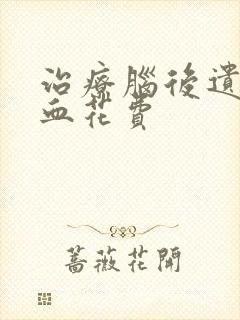 治療腦後遺
血花費
薔薇花開